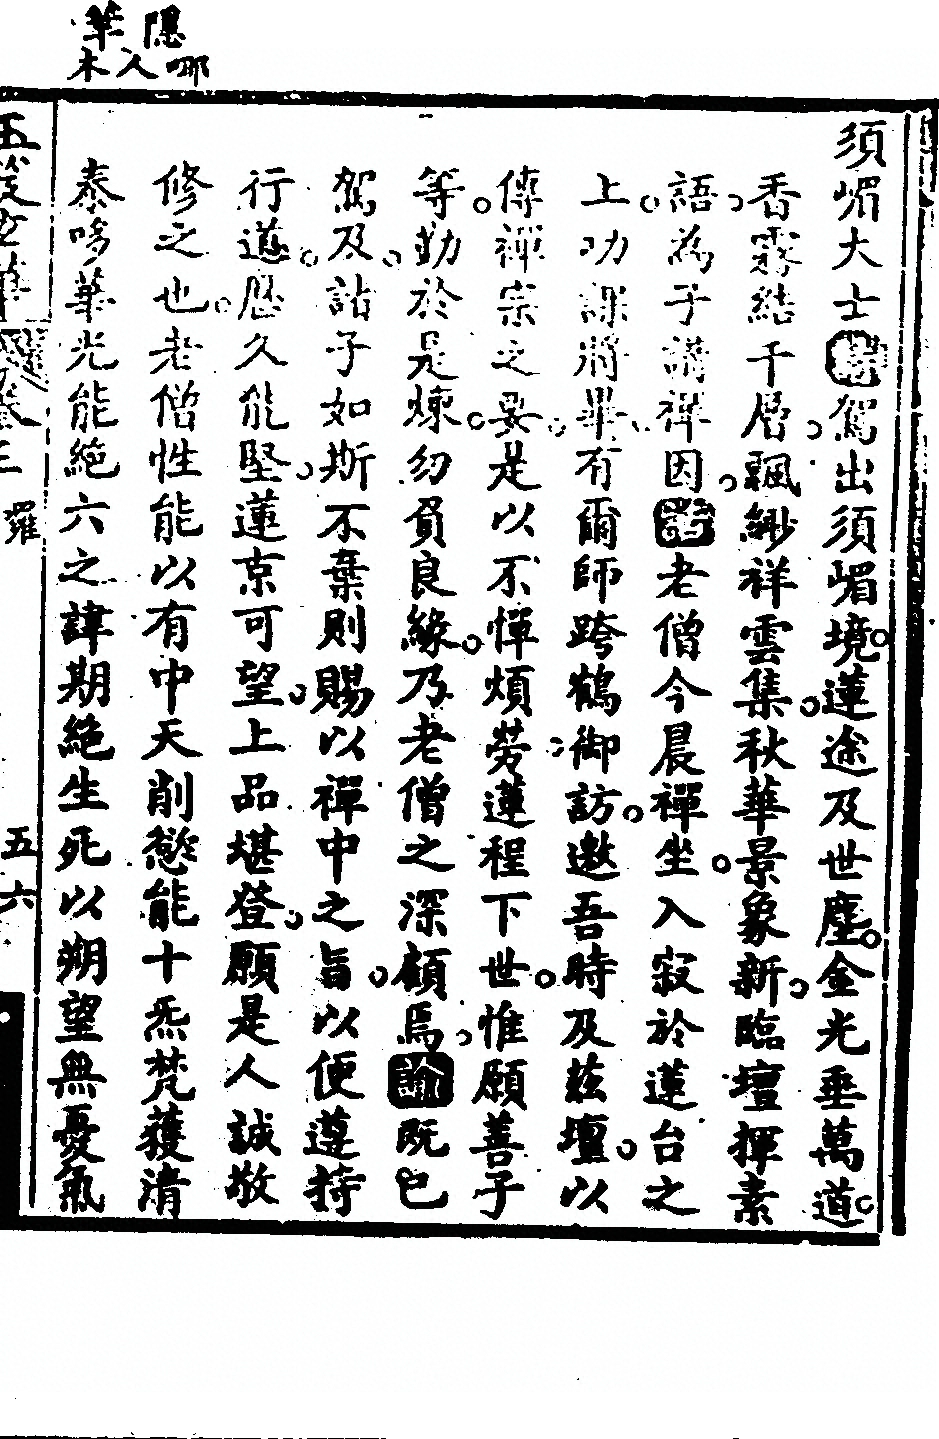 隱哪
入
華木
須嵋大士詩駕出須嵋境蓮途及世塵金光垂萬道
香霧結千層飄緲祥雲集秋華景象新臨壇揮素
語為子講禪因老僧今晨禪坐入寂於蓮台之
上功課將畢有爾師跨鶴御訪邀吾時及茲壇以
傳禪宗之要是以不憚煩勞蓮程下世惟願善子
等勤於是煉勿負良緣乃老僧之深顧焉諭既已
駕及詣子如斯不棄則賜以禪中之旨以便遵持
行道歷久能堅蓮京可望上品堪登願是人誠敬
修之也老僧性能以有中天削慾能十炁梵獲清
泰哆華光能絕六之諱期絕生死以朔望無憂氣
卷三 羅 五六